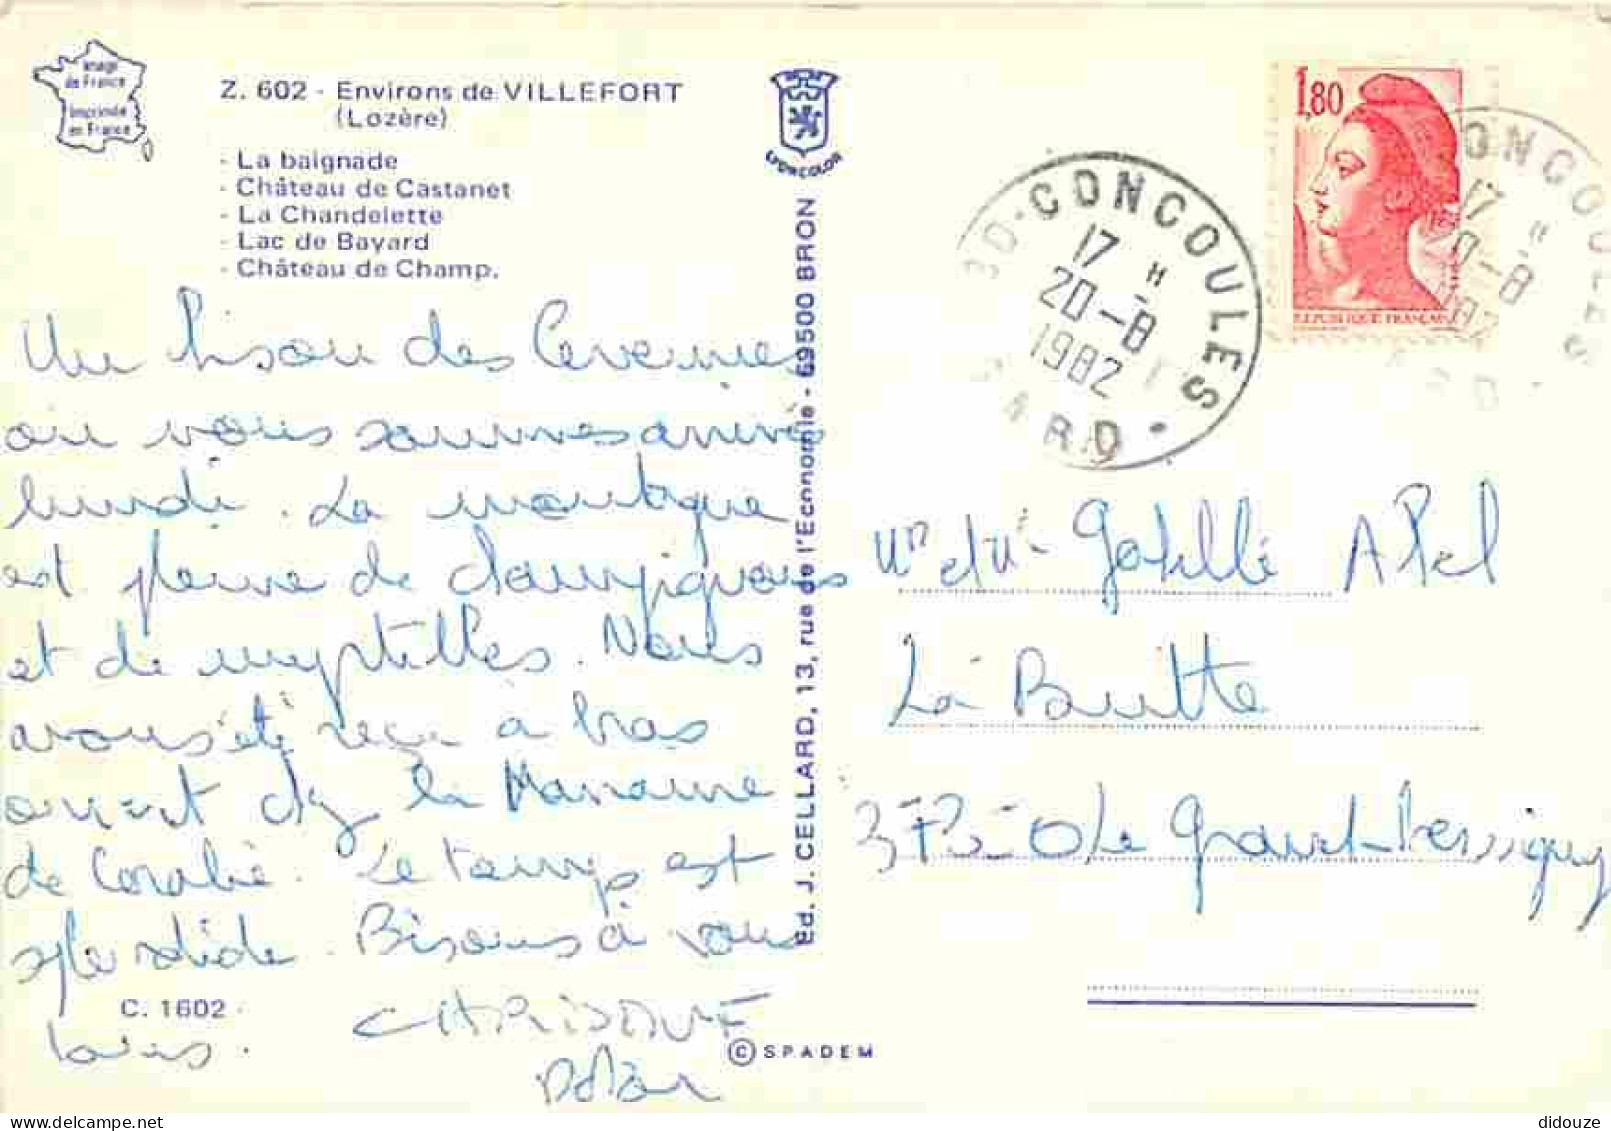 Image
de France
Imprimée
en France
Z. 602 - Environs de VILLEFORT
(Lozère)
- La baignade
- Château de Castanet
- La Chandelette
- Lac de Bayard
- Château de Champ.
LYONCOLOR
Ed. J. CELLARD, 13, rue de l'Economie - 69500 BRON
1,80
REPUBLIQUE FRANÇAISE
30-CONCOULES
17 H
20-8
1982
GARD
ONCOULES
17 H
20-8
1982
ARD
Un bisou des Cevennes
où nous sommes arrivés
lundi. La montagne
est pleine de champignons
et de myrtilles. Nous
avons été reçu à bras
ouvert chez la Marraine
de Coralie. Le temps est
splendide. Bisous à vous
tous.
C. 1602
© SPADEM
La Butte
Le Grand-Pressigny
didouze